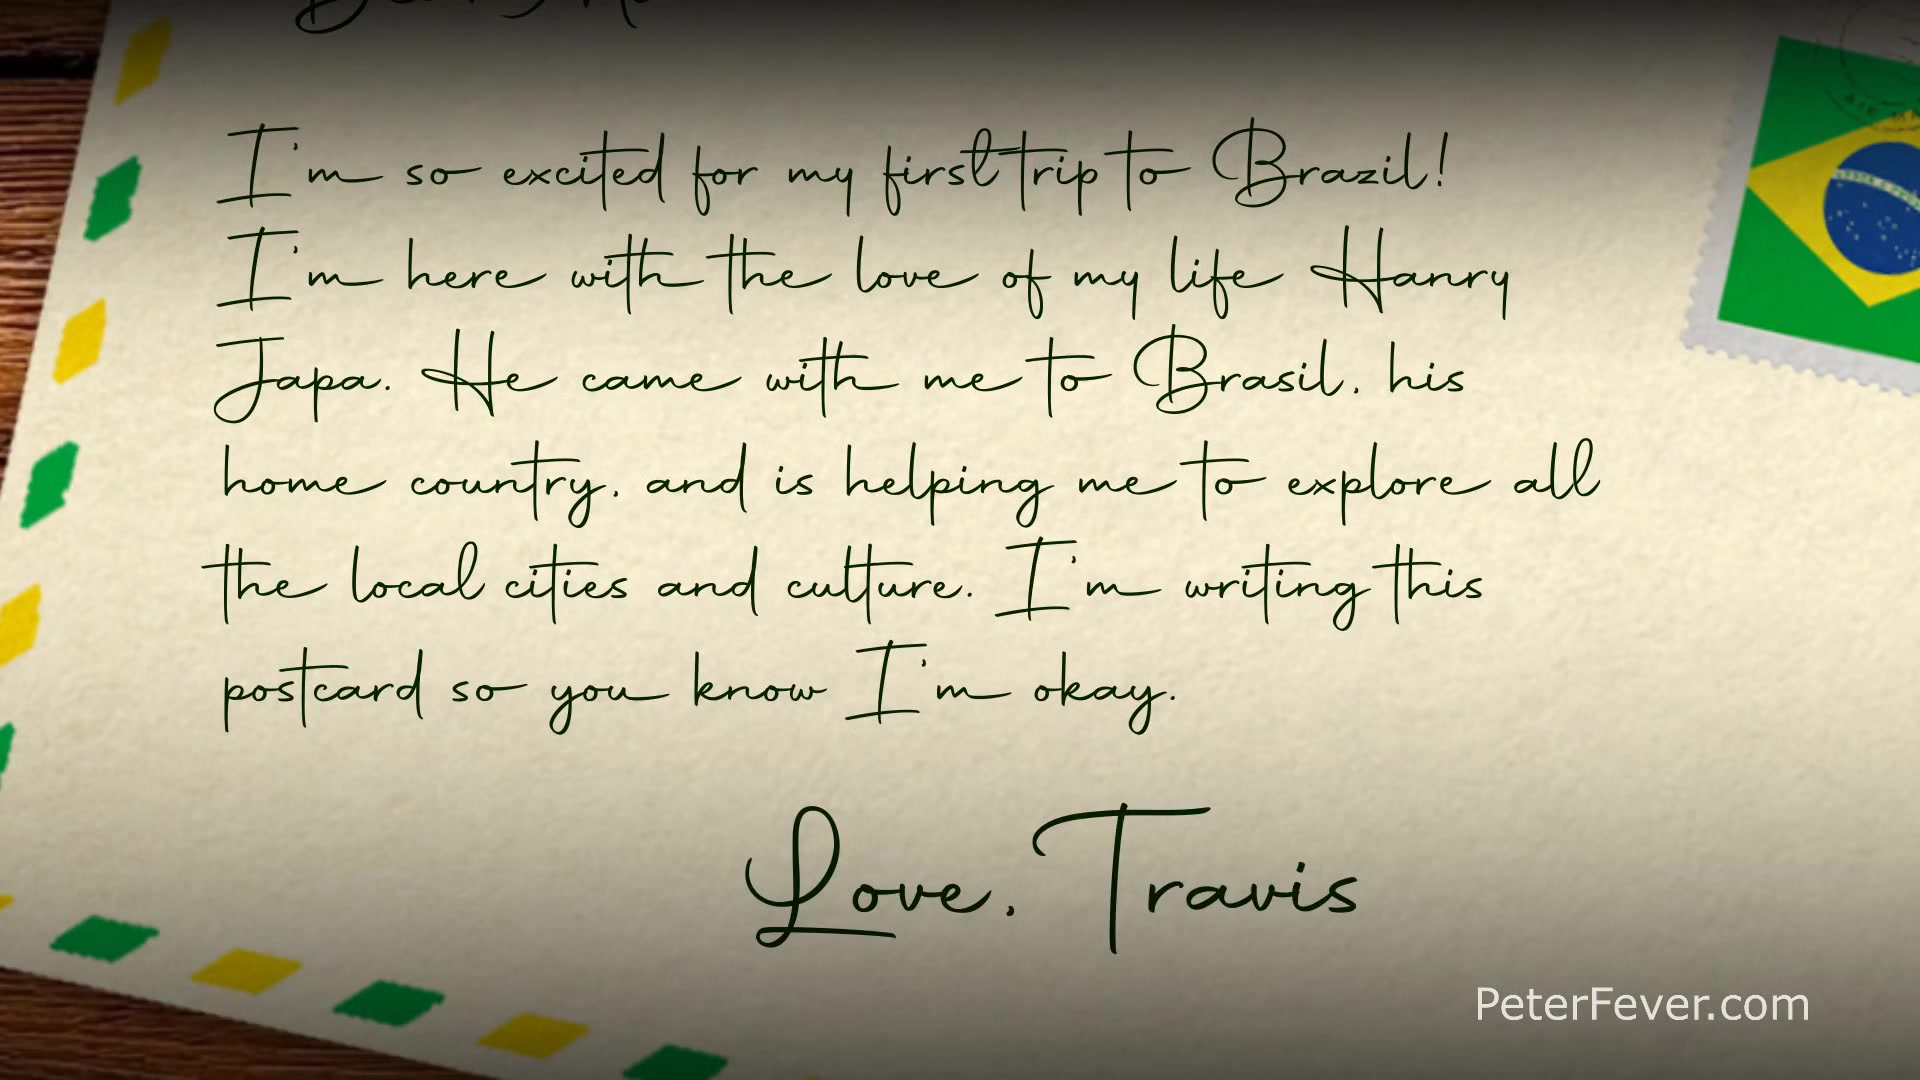 I'm so excited for my first trip to Brazil!
I'm here with the love of my life Hanry
Japa. He came with me to Brasil, his
home country, and is helping me to explore all
the local cities and culture. I'm writing this
postcard so you know I'm okay.
Love, Travis
PeterFever.com